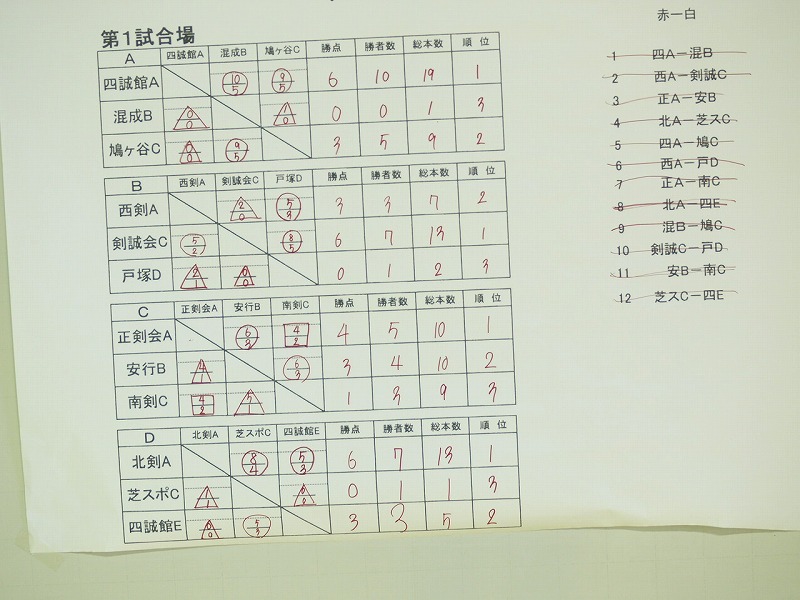 第1試合場
A 四誠館A 混成B 鳩ヶ谷C 勝点 勝者数 総本数 順 位
四誠館A 10/5 9/5 6 10 19 1
混成B 0/0 1/0 0 0 1 3
鳩ヶ谷C 0/0 9/5 3 5 9 2
B 西剣A 剣誠会C 戸塚D 勝点 勝者数 総本数 順 位
西剣A 2/0 5/3 3 3 7 2
剣誠会C 5/2 8/5 6 7 13 1
戸塚D 2/1 0/0 0 1 2 3
C 正剣会A 安行B 南剣C 勝点 勝者数 総本数 順 位
正剣会A 6/3 4/2 4 5 10 1
安行B 4/1 6/3 3 4 10 2
南剣C 4/2 5/1 1 3 9 3
D 北剣A 芝スポC 四誠館E 勝点 勝者数 総本数 順 位
北剣A 8/4 5/3 6 7 13 1
芝スポC 1/1 0/0 1 1 3
四誠館E 0/0 5/3 3 3 5 2
赤ー白
1 四A－混B
2 西A－剣誠C
3 正A－安B
4 北A－芝スC
5 四A－鳩C
6 西A－戸D
7 正A－南C
8 北A－四E
9 混B－鳩C
10 剣誠C－戸D
11 安B－南C
12 芝スC－四E